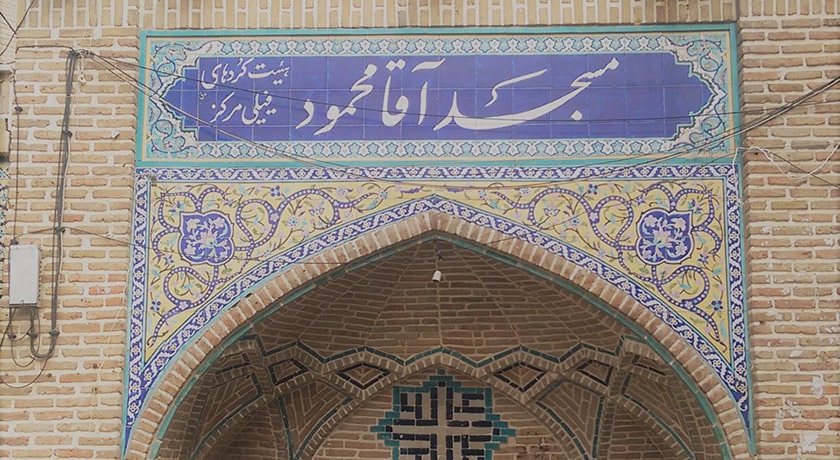 مسجد آقا محمود
هیئت کُردهای
فیلی مرکز